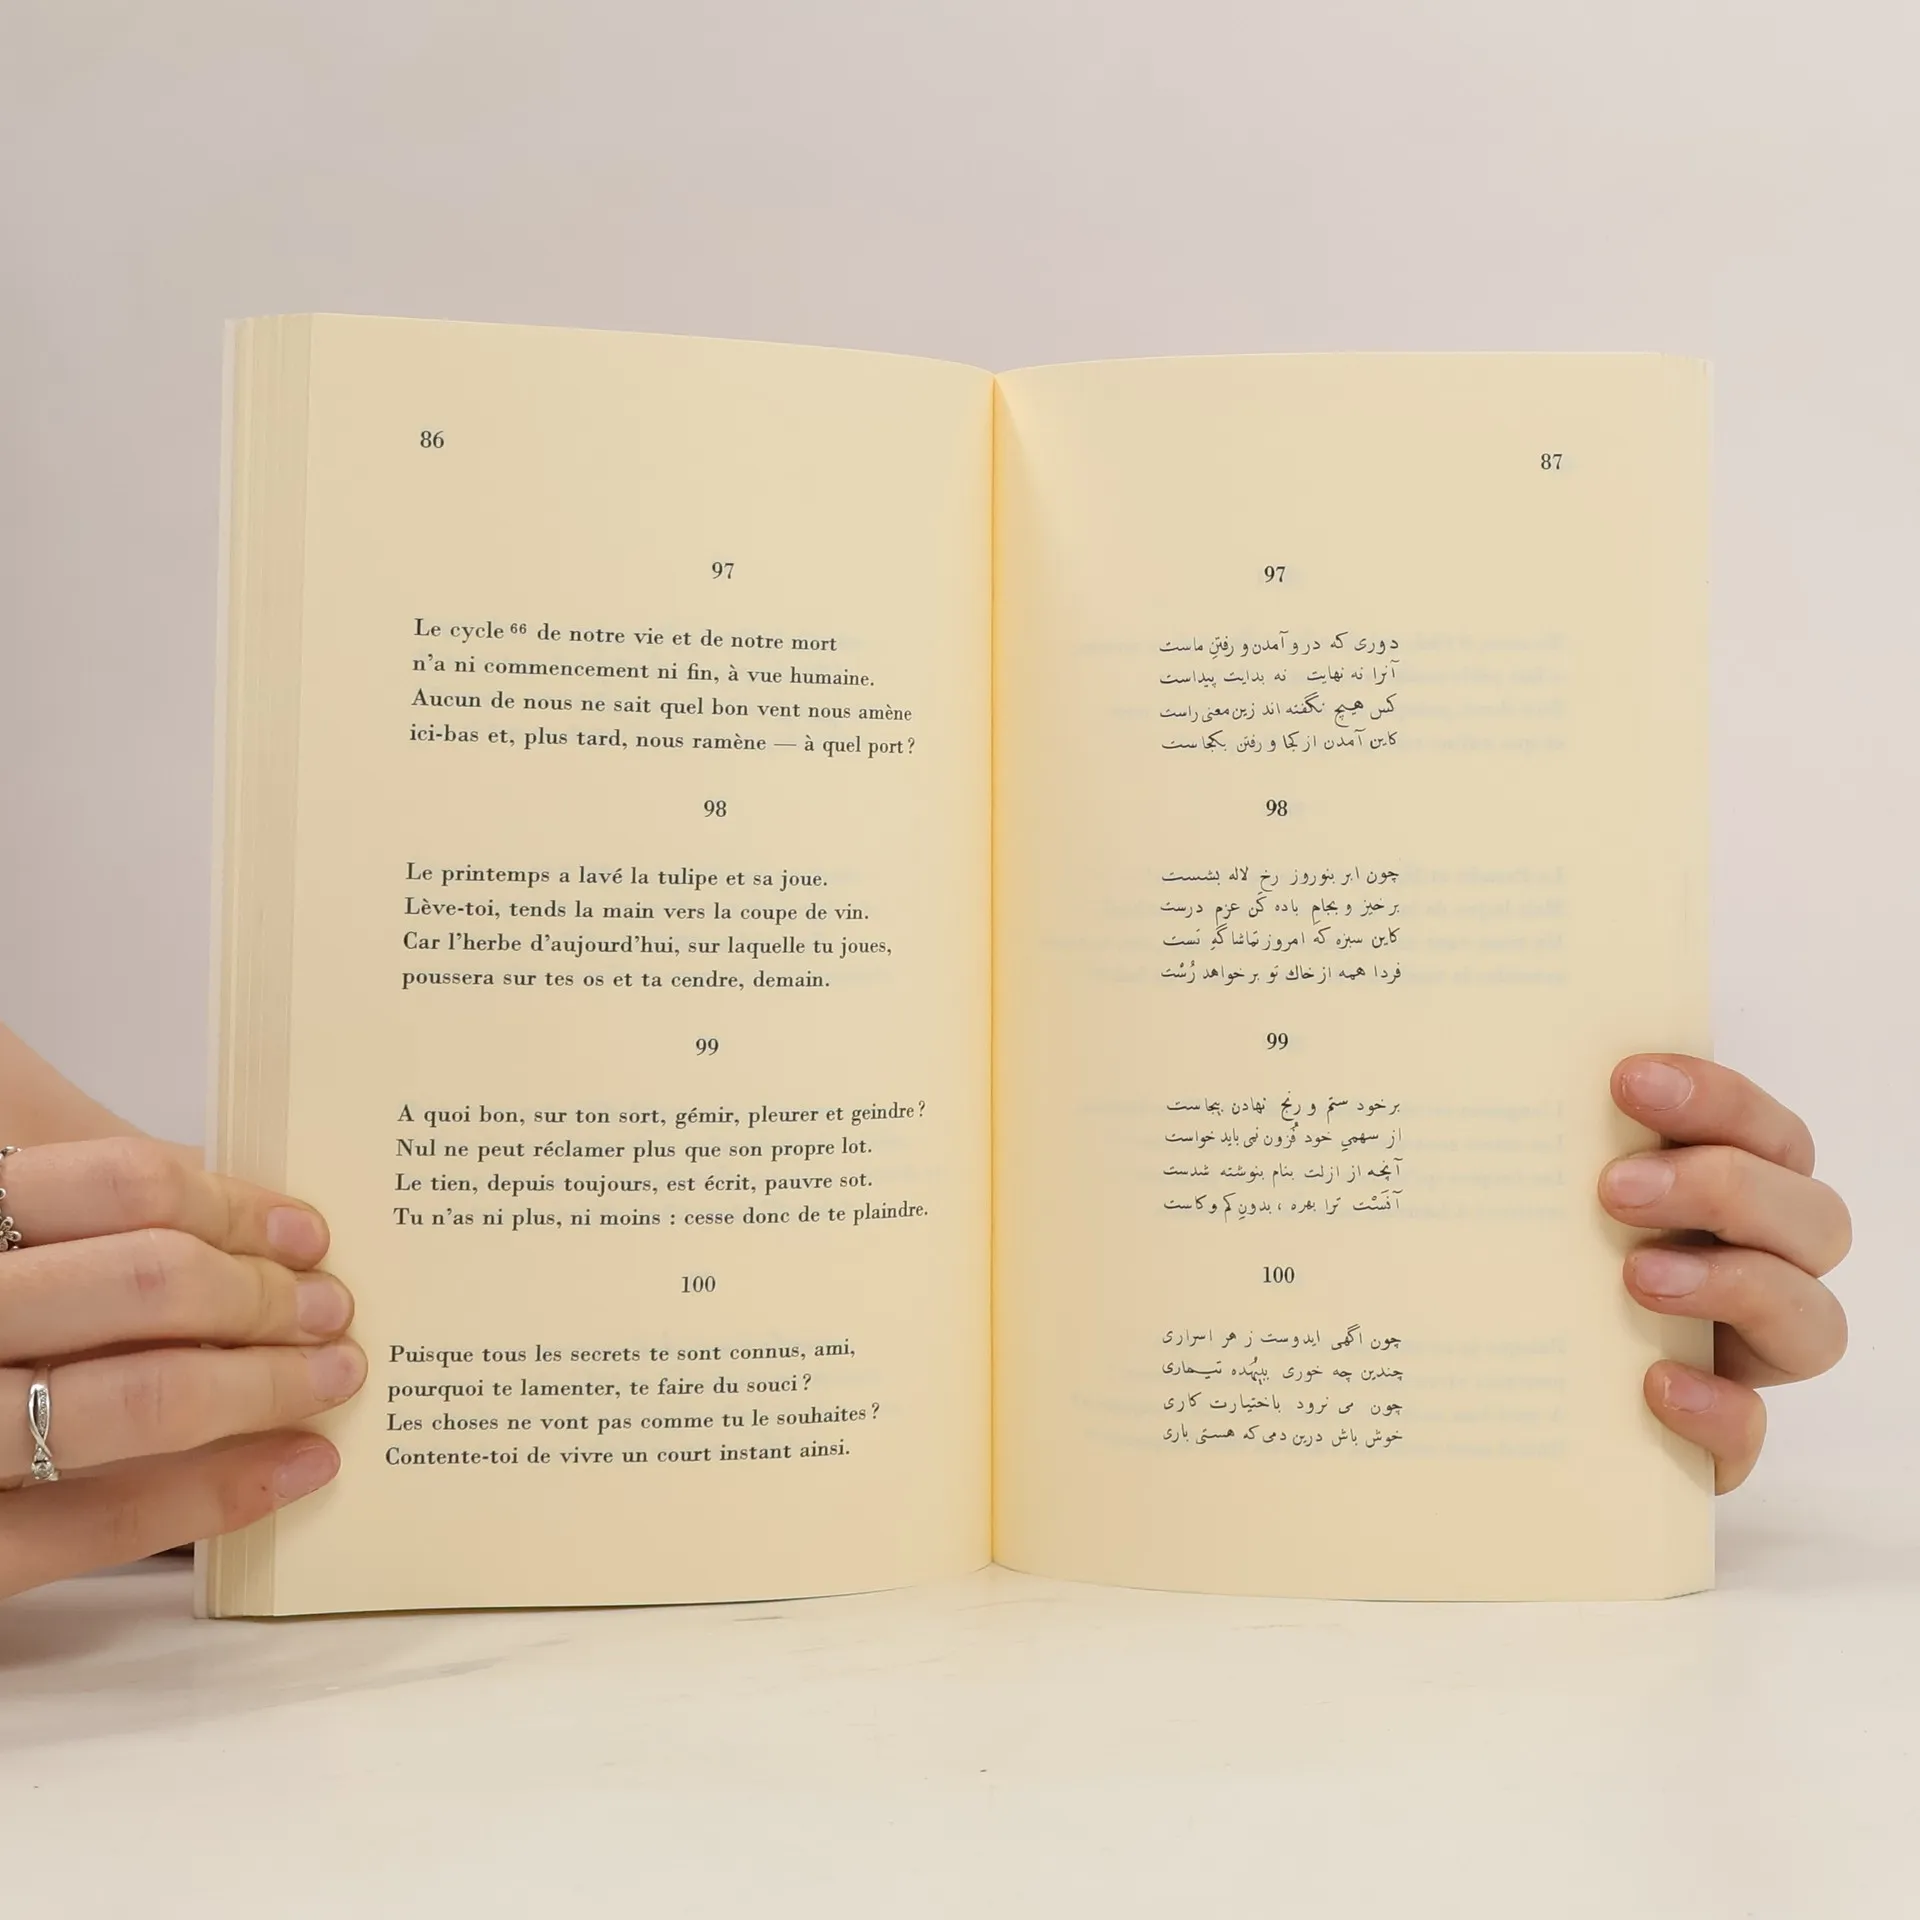 86
97
Le cycle ⁶⁶ de notre vie et de notre mort
n’a ni commencement ni fin, à vue humaine.
Aucun de nous ne sait quel bon vent nous amène
ici-bas et, plus tard, nous ramène — à quel port ?
98
Le printemps a lavé la tulipe et sa joue.
Lève-toi, tends la main vers la coupe de vin.
Car l’herbe d’aujourd’hui, sur laquelle tu joues,
poussera sur tes os et ta cendre, demain.
99
A quoi bon, sur ton sort, gémir, pleurer et geindre ?
Nul ne peut réclamer plus que son propre lot.
Le tien, depuis toujours, est écrit, pauvre sot.
Tu n’as ni plus, ni moins : cesse donc de te plaindre.
100
Puisque tous les secrets te sont connus, ami,
pourquoi te lamenter, te faire du souci ?
Les choses ne vont pas comme tu le souhaites ?
Contente-toi de vivre un court instant ainsi.
87
97
دوری که در و آمدن و رفتنِ ماست
آنرا نه نهایت نه بدایت پیداست
کس هیچ نگفته اند زین معنی راست
کاین آمدن از کجا و رفتن بکجاست
98
چون ابر بنوروز رخِ لاله بشست
برخیز و بجامِ باده کن عزمِ درست
کاین سبزه که امروز تماشاگهِ تست
فردا همه از خاك تو برخواهد رُسْت
99
برخود ستم و رنج نهادن بیجاست
از سهمیِ خود فُزون نمی باید خواست
آنچه از ازلت بنام بنوشته شدست
آنَسْت ترا بهره ، بدونِ کم وکاست
100
چون اگهی ایدوست ز هر اسراری
چندین چه خوری بیهُده تیماری
چون می نرود باختیارت کاری
خوش باش درین دمی که هستی باری